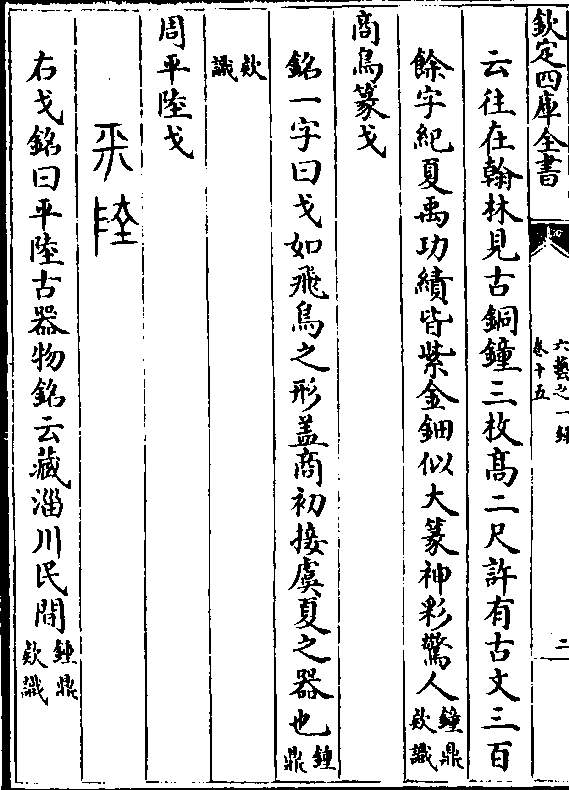 欽定四庫全書
六藝之一録
卷十五
二
云往在翰林見古銅鐘三枚髙二尺許有古文三百
餘字紀夏禹功績皆紫金鈿似大篆神彩驚人鐘鼎欵識
商鳥篆戈
銘一字曰戈如飛鳥之形盖商初接虞夏之器也鐘鼎
欵識
周平陸戈
平陸
右戈銘曰平陸古器物銘云藏淄川民間鐘鼎欵識